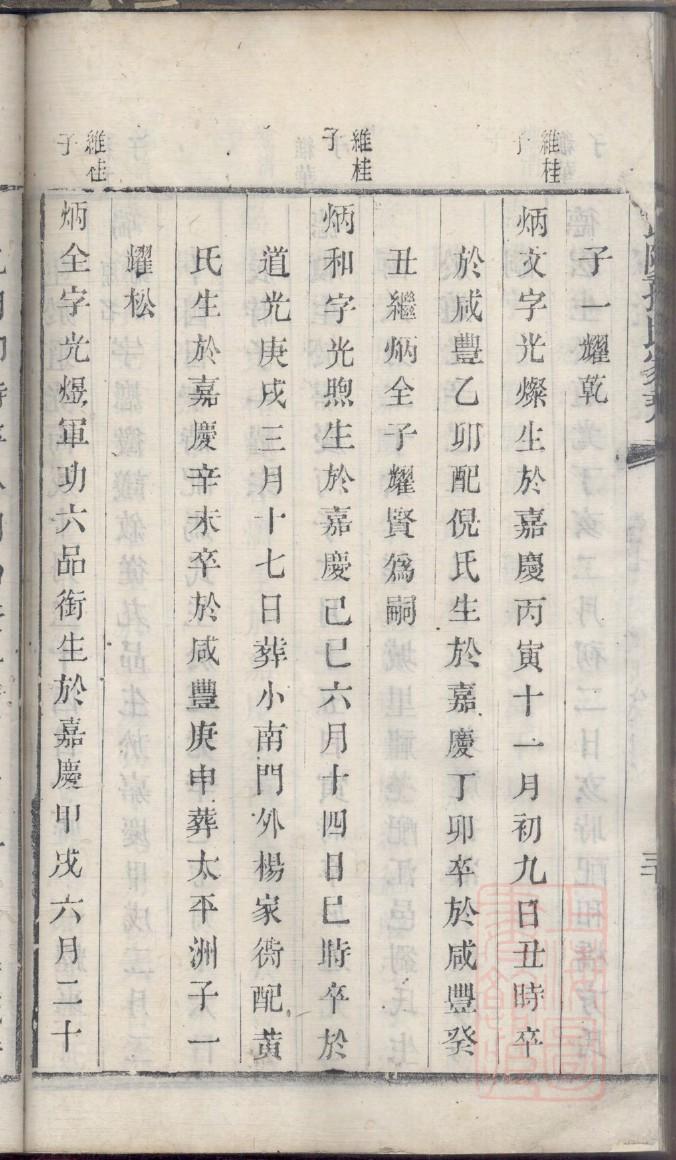 子一耀乾
維桂
子
炳文字光燦生於嘉慶丙寅十一月初九日丑時卒
於咸豐乙卯配倪氏生於嘉慶丁卯卒於咸豐癸
丑繼炳全子耀賢爲嗣
維桂
子
炳和字光煦生於嘉慶己巳六月十四日巳時卒於
道光庚戌三月十七日葬小南門外楊家衖配黃
氏生於嘉慶辛未卒於咸豐庚申葬太平洲子一
耀松
維桂
子
炳全字光煜軍功六品銜生於嘉慶甲戌六月二十